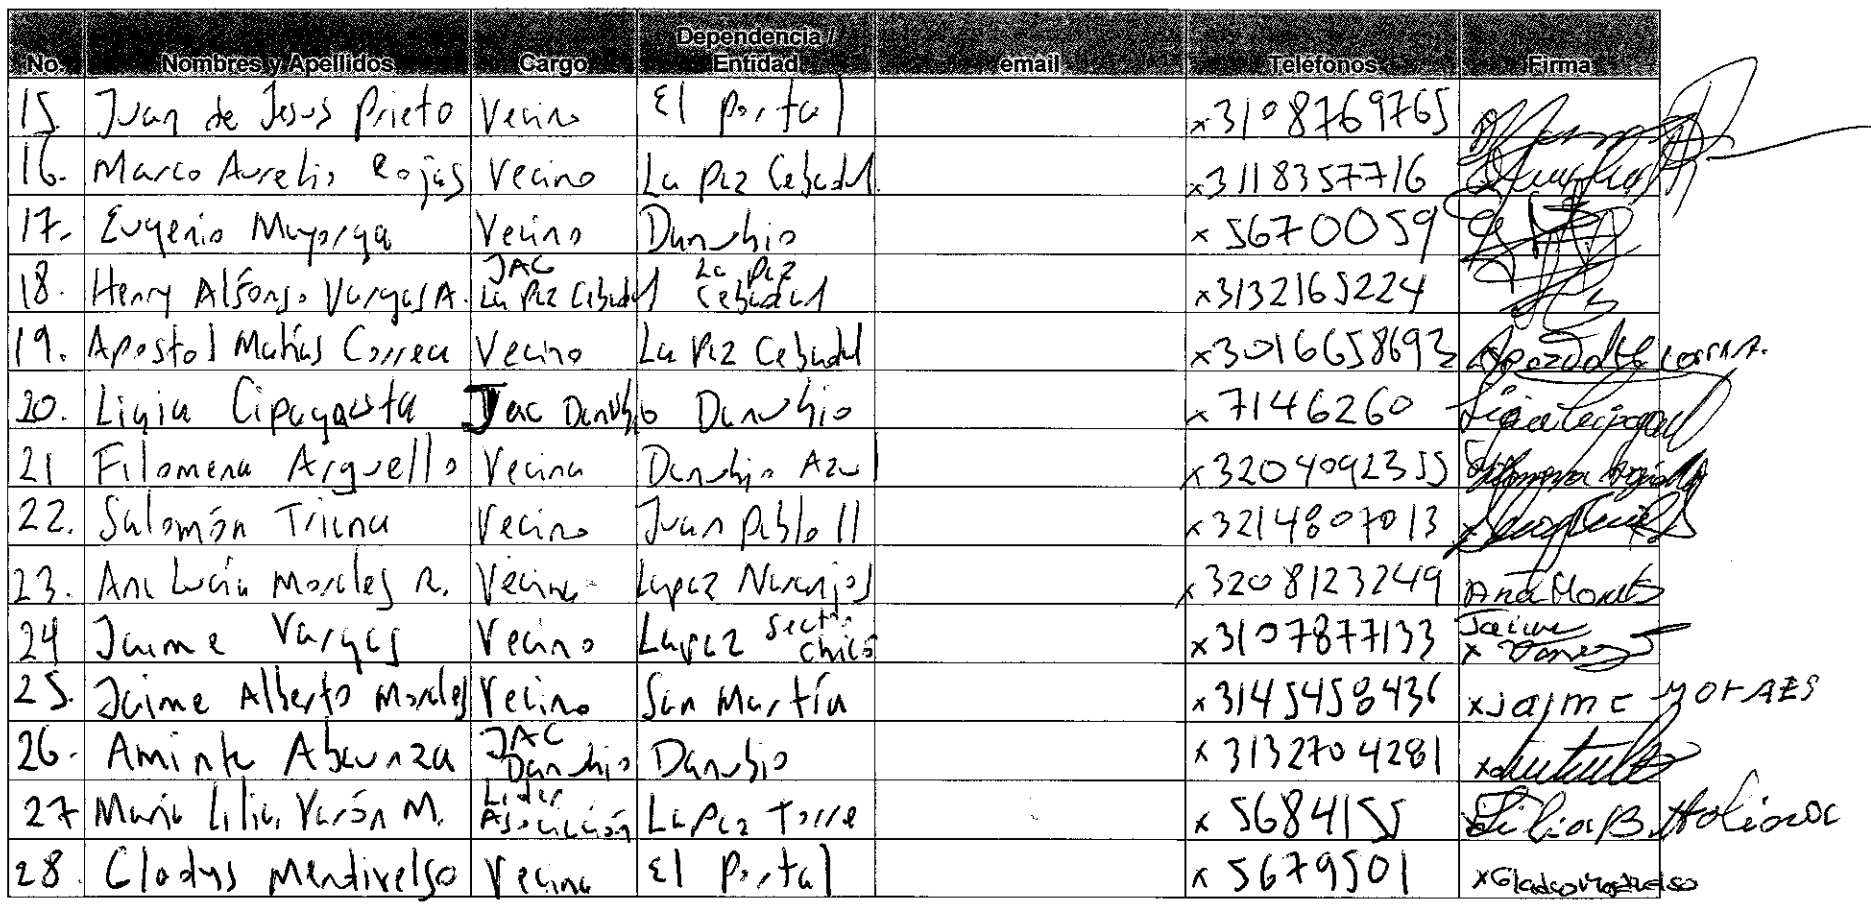 No. Nombres y Apellidos Cargo Dependencia / Entidad email Teléfonos Firma
15. Juan de Jesus Prieto Vecino El Portal x3108769765
16. Marco Aurelio Rojas Vecino La Paz Cebadal. x3118357716
17. Eugenio Mayorga Vecino Danubio x 5670059
18. Henry Alfonso Vargas A. JAC La Paz Cebadal La Paz Cebadal x3132165224
19. Apostol Matías Correa Vecino La Paz Cebadal
20. Ligia Cipagauta Jac Danubio Danubio x 7146260
21 Filomena Arguello Vecina Danubio Azul x3204092355
22. Salomón Triana Vecino Juan Pablo II x3214807013
23. Ana Lucía Morales R. Vecina Lapaz Naranjos x3208123249
24 Jaime Vargas Vecino Lapaz Sector Chicó x3107877133 Jaime
25. Jaime Alberto Morales Vecino San Martín x3145458436 xJaime
26. Aminta Abaunza JAC Danubio Danubio x 3132704281
27 María Lilia Varón M. Lider Asociación La Paz Torre x 5684155
28. Gladys Mendivelso Vecina El Portal x 5679501